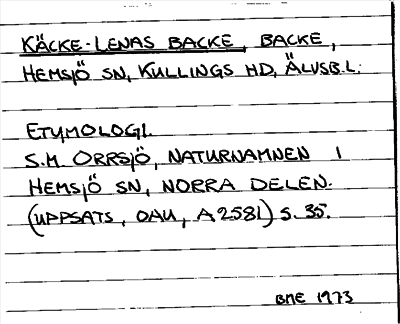 KÄCKE-LENAS BACKE, BACKE,
HEMSJÖ SN, KULLINGS HD, ÄLVSB.L.
ETYMOLOGI
S.M. ORRSJÖ, NATURNAMNEN I
HEMSJÖ SN, NORRA DELEN.
(UPPSATS, OAU, A2581) S. 35.
BME 1973